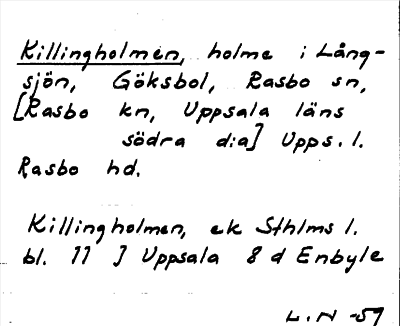 Killingholmen, holme i Lång-
sjön, Göksbol, Rasbo sn,
[Rasbo kn, Uppsala läns
södra d:a] Upps. l.
Rasbo hd.
Killingholmen, ek Sthlms l.
bl. 11 J Uppsala 8 d Enbyle
L.N -57